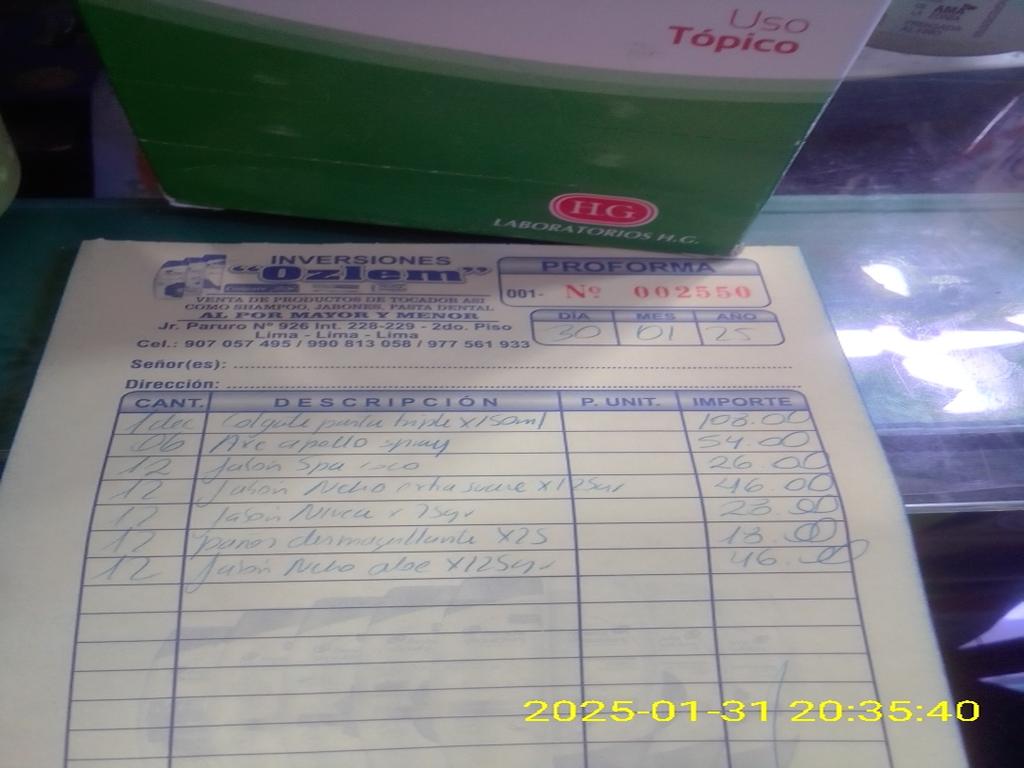 Uso
Tópico
H.G
LABORATORIOS H.G.
INVERSIONES
"Ozlem"
VENTA DE PRODUCTOS DE TOCADOR ASI
COMO SHAMPOO, JABONES, PASTA DENTAL
AL POR MAYOR Y MENOR
Jr. Paruro Nº 926 Int. 228-229 - 2do. Piso
Lima - Lima - Lima
Cel.: 907 057 495 / 990 813 058 / 977 561 933
PROFORMA
001- Nº 002550
DÍA MES AÑO
30 01 25
Señor(es):
Dirección:
CANT. DESCRIPCIÓN P. UNIT. IMPORTE
1 dec Colgate pasta triple x150ml 108.00
06 apollo spray 54.00
12 Jabón Spa coco 26.00
12 Jabón Ncho extra suave x125gr 46.00
12 Jabón Nivea x 75gr 23.00
12 panos desmaquillante x25 13.00
12 Jabón Ncho aloe x125gr 46.00
2025-01-31 20:35:40